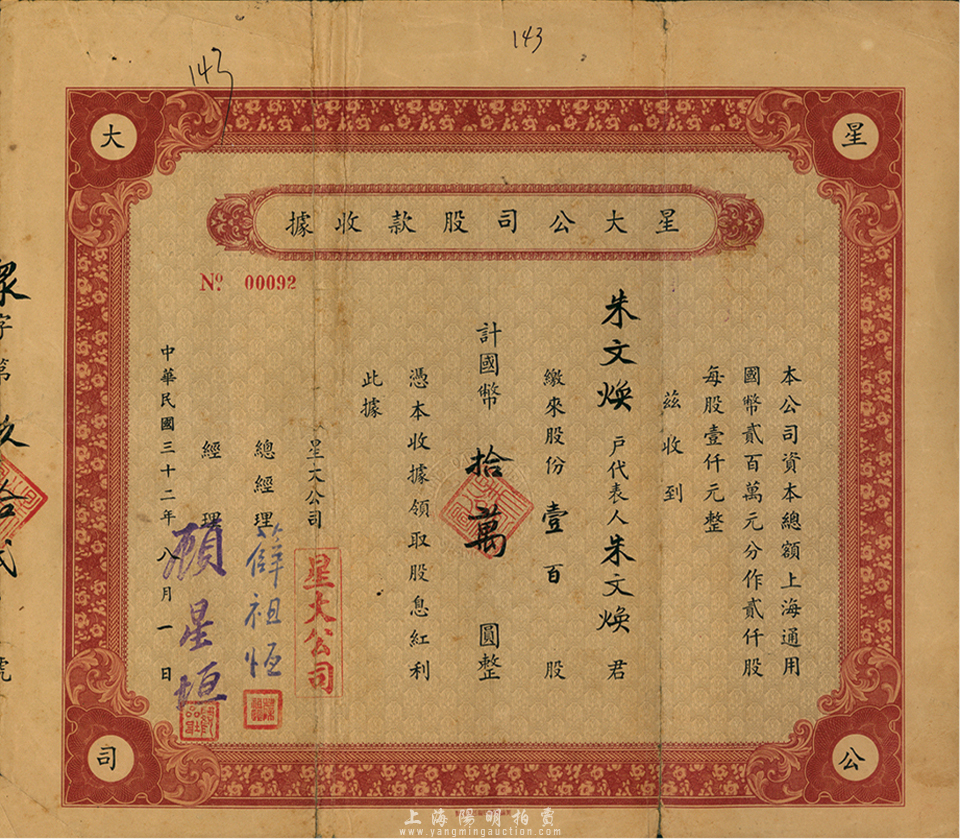 143
143
星
大
公
司
星大公司股款收據
No. 00092
本公司資本總額上海通用
國幣貳百萬元分作貳仟股
每股壹仟元整
茲收到
朱文煥戶代表人朱文煥君
繳來股份壹百股
計國幣拾萬圓整
憑本收據領取股息紅利
此據
星大公司
星大公司
總經理 薛祖恆
經理 顧星垣
中華民國三十二年八月一日
字第玖拾貳號
上海陽明拍賣
www.yangmingauction.com